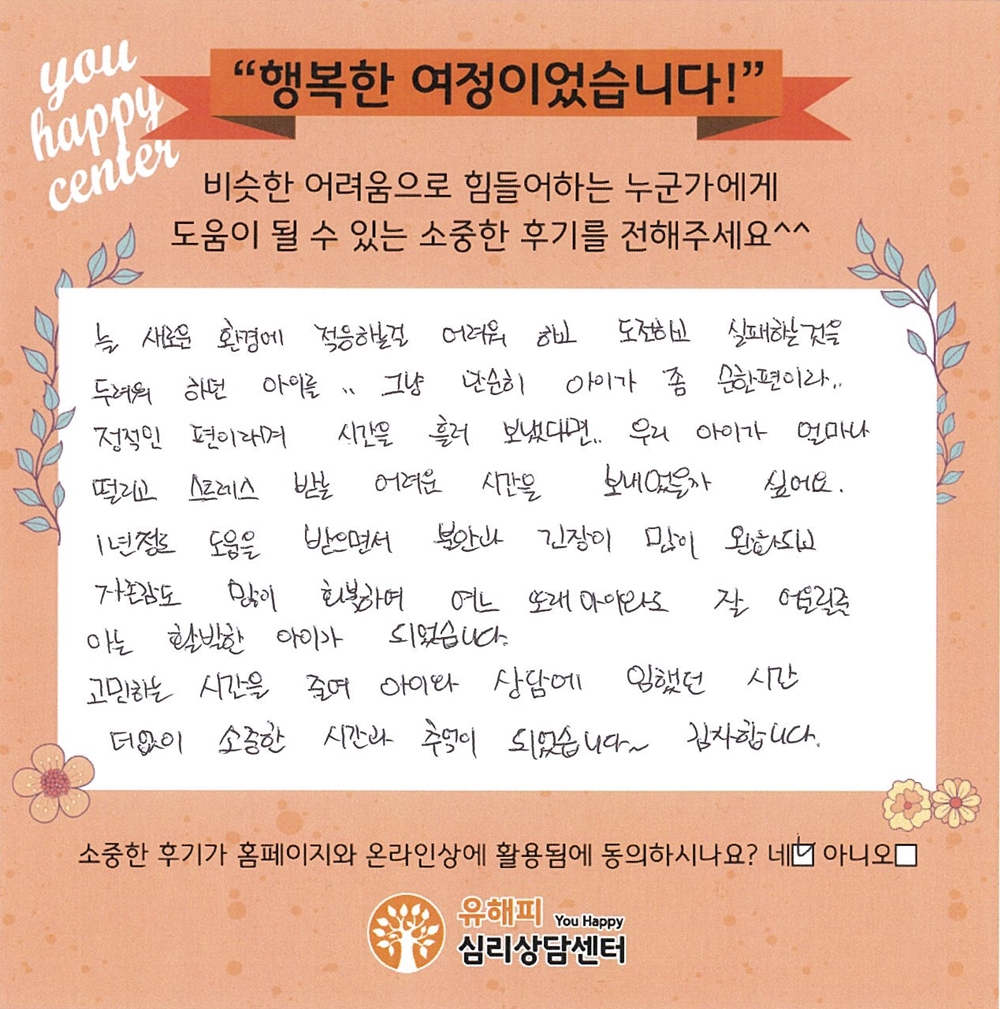 you
happy
center
“행복한 여정이었습니다!”
비슷한 어려움으로 힘들어하는 누군가에게
도움이 될 수 있는 소중한 후기를 전해주세요^^
늘 새로운 환경에 적응하는걸 어려워 하고 도전하고 실패하는것을
두려워 하던 아이를 .. 그냥 단순히 아이가 좀 순한편이라..
정적인 편이라며 시간을 흘러 보냈다면.. 우리 아이가 얼마나
떨리고 스트레스 받는 어려운 시간을 보내었을까 싶어요.
1년정도 도움을 받으면서 불안과 긴장이 많이 완화되고
자존감도 많이 회복하여 여느 또래 아이와도 잘 어울릴줄
아는 활발한 아이가 되었습니다.
고민하는 시간을 줄여 아이와 상담에 임했던 시간
더없이 소중한 시간과 추억이 되었습니다~ 감사합니다.
소중한 후기가 홈페이지와 온라인상에 활용됨에 동의하시나요? 네☑ 아니오☐
유해피 You Happy
심리상담센터